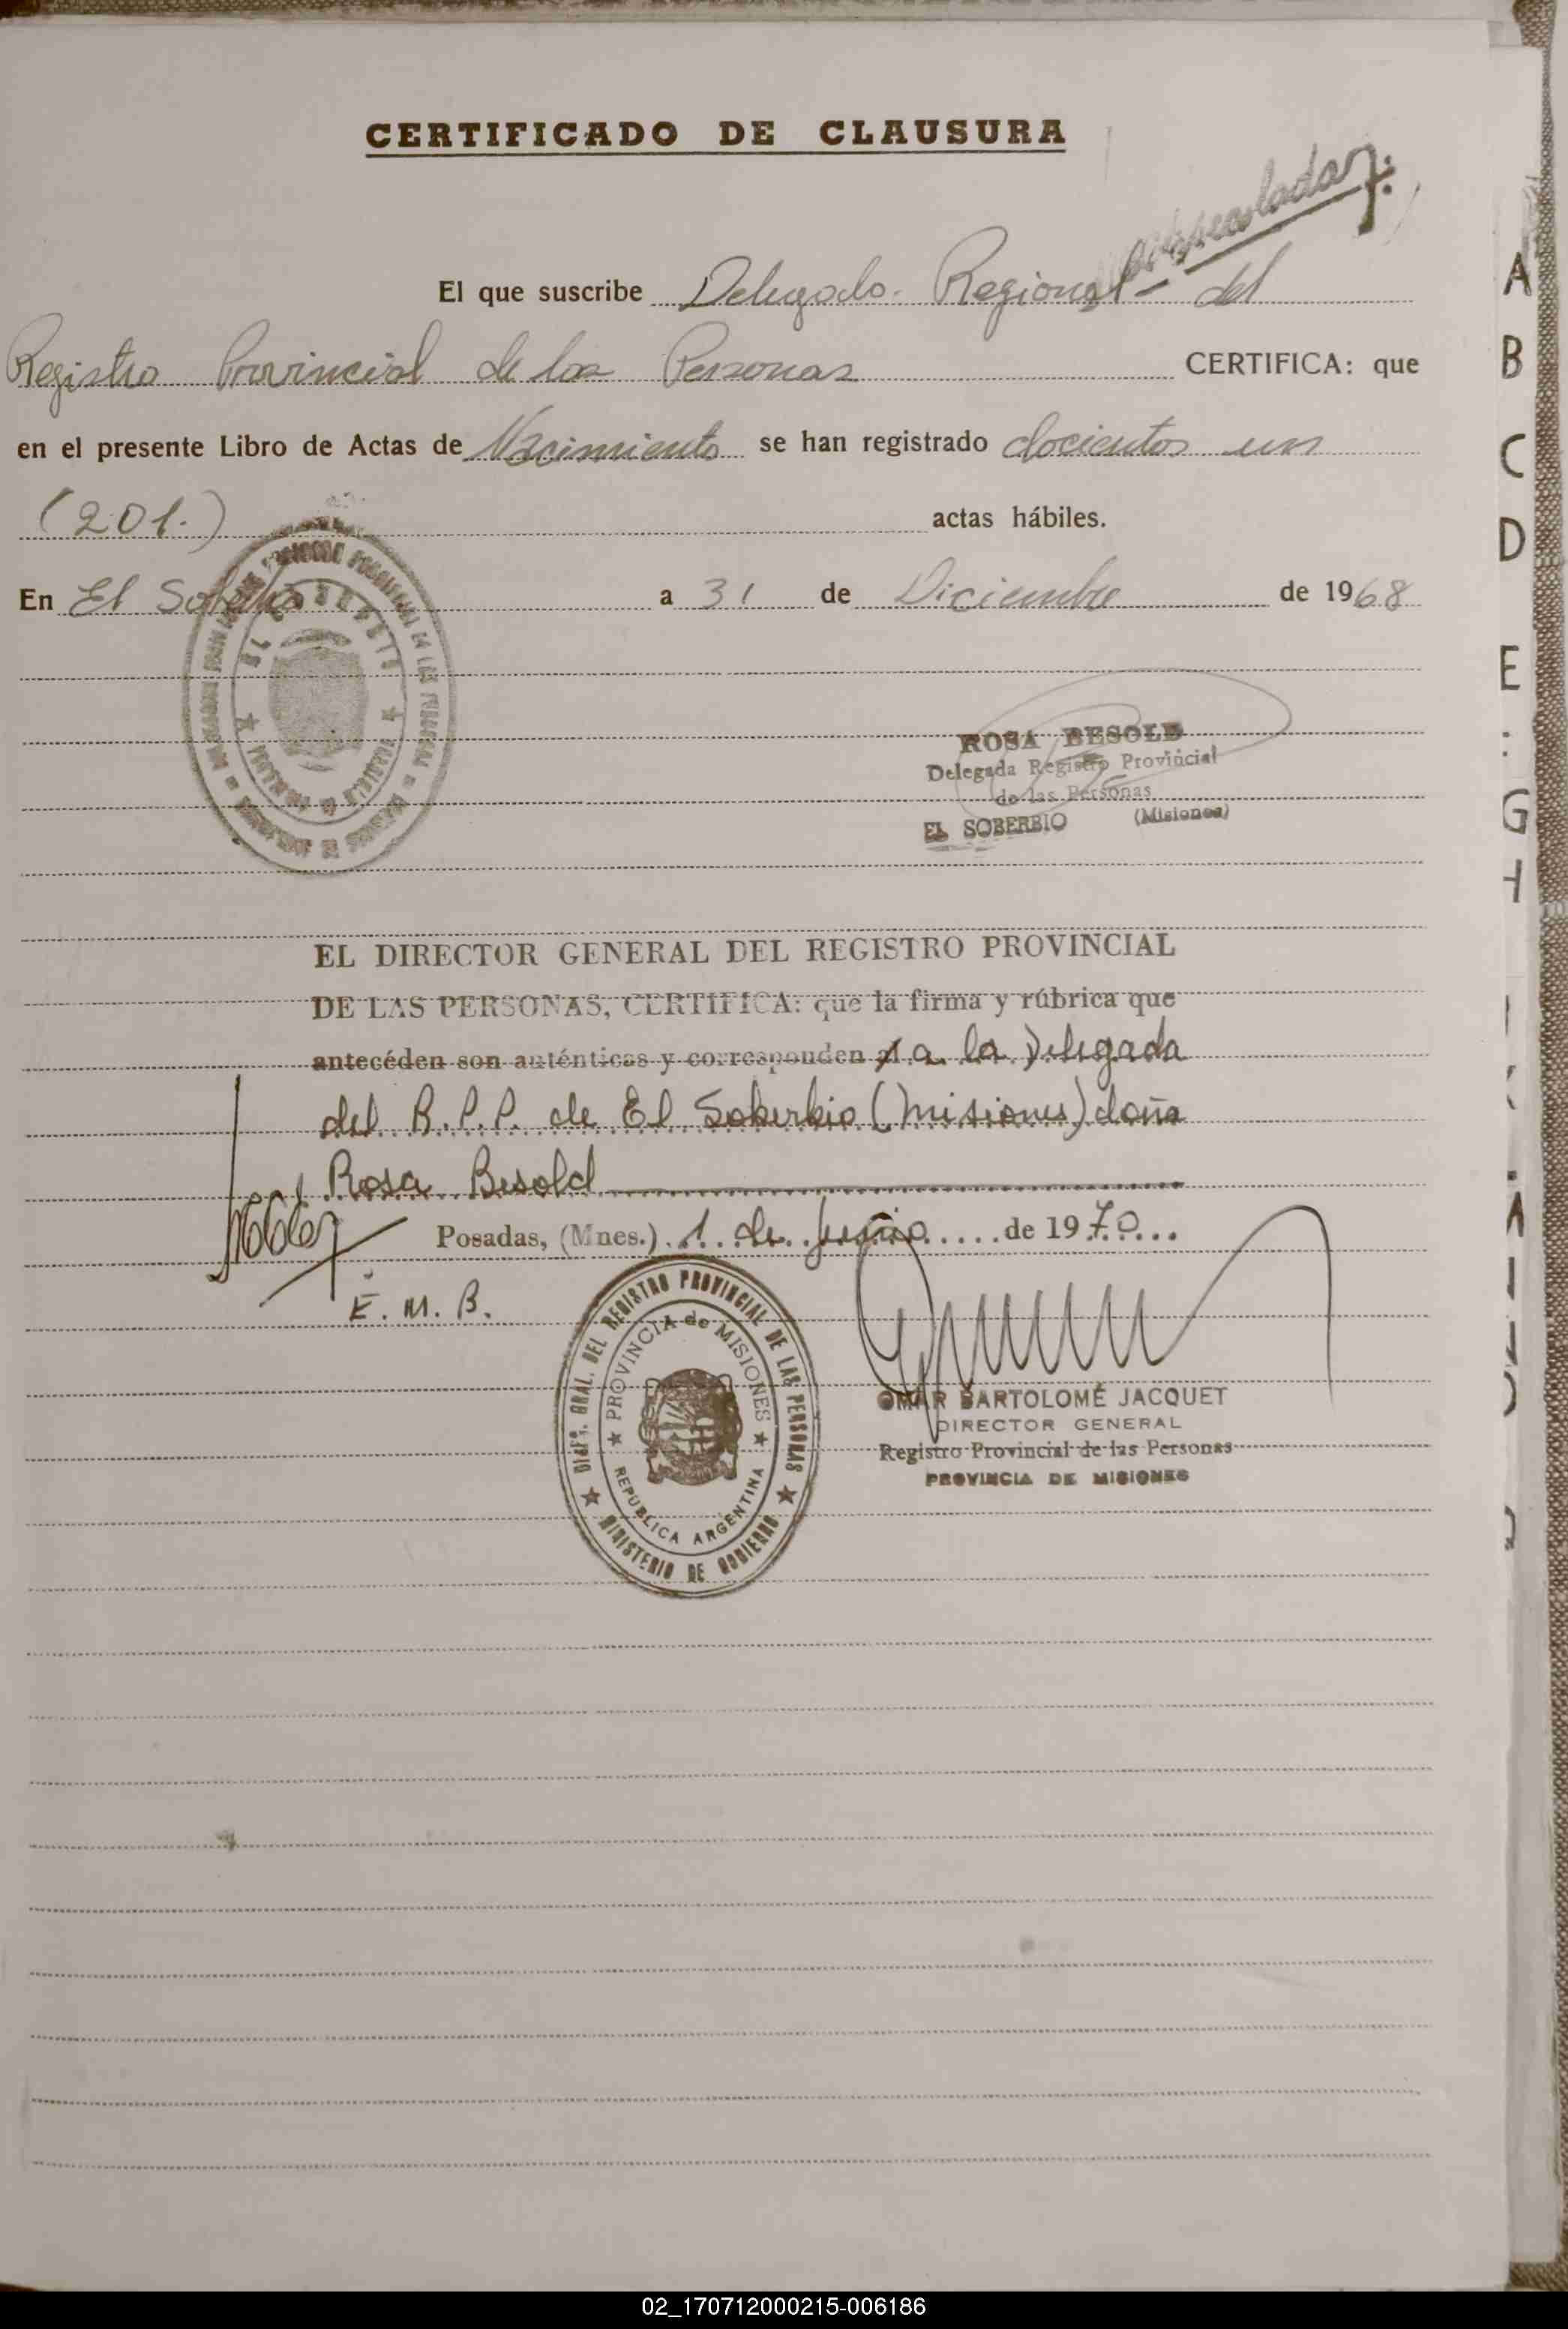 CERTIFICADO DE CLAUSURA
El que suscribe Delegado Regional - del
Registro Provincial de las Personas CERTIFICA: que
en el presente Libro de Actas de Nacimiento se han registrado docientos un
(201.) actas hábiles.
En El Soberbio a 31 de Diciembre de 1968
ROSA BESOLD
Delegada Registro Provincial
de las Personas
EL SOBERBIO (Misiones)
EL DIRECTOR GENERAL DEL REGISTRO PROVINCIAL
DE LAS PERSONAS, CERTIFICA: que la firma y rúbrica que
antecéden son auténticas y corresponden al a la Delegada
del R.P.P. de El Soberbio (Misiones) doña
Rosa Besold
Posadas, (Mnes.) 1 de Junio de 1970
E. M. B.
DIREc. GRAL. DEL REGISTRO PROVINCIAL DE LAS PERSONAS
PROVINCIA de MISIONES
REPÚBLICA ARGENTINA
MINISTERIO DE GOBIERNO
OMAR BARTOLOMÉ JACQUET
DIRECTOR GENERAL
Registro Provincial de las Personas
PROVINCIA DE MISIONES
A
B
C
D
E
G
H
02_170712000215-006186